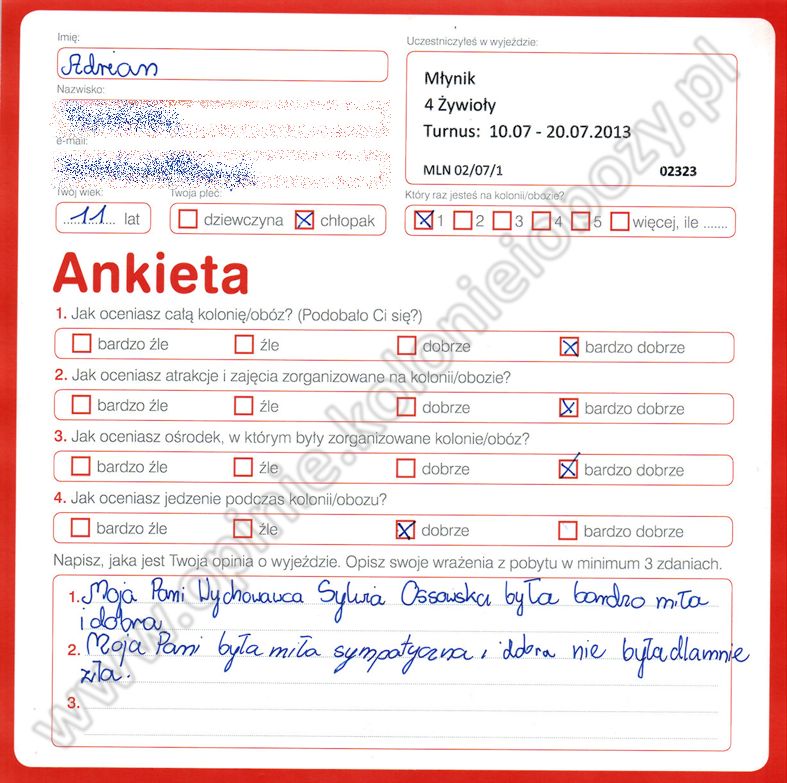 Imię:
Adrian
Nazwisko:
e-mail:
Twój wiek:
11 lat
Twoja płeć:
dziewczyna chłopak
Uczestniczyłeś w wyjeździe:
Młynik
4 Żywioły
Turnus: 10.07 - 20.07.2013
MLN 02/07/1 02323
Który raz jesteś na kolonii/obozie?
1 2 3 4 5 więcej, ile .......
Ankieta
1. Jak oceniasz całą kolonię/obóz? (Podobało Ci się?)
bardzo źle źle dobrze bardzo dobrze
2. Jak oceniasz atrakcje i zajęcia zorganizowane na kolonii/obozie?
bardzo źle źle dobrze bardzo dobrze
3. Jak oceniasz ośrodek, w którym były zorganizowane kolonie/obóz?
bardzo źle źle dobrze bardzo dobrze
4. Jak oceniasz jedzenie podczas kolonii/obozu?
bardzo źle źle dobrze bardzo dobrze
Napisz, jaka jest Twoja opinia o wyjeździe. Opisz swoje wrażenia z pobytu w minimum 3 zdaniach.
1. Moja Pani Wychowawca Sylwia Ossowska była bardzo miła
i dobra
2. Moja Pani była miła sympatyczna i dobra nie była dla mnie
zła.
3.
www.opinie.kolonieiobozy.pl